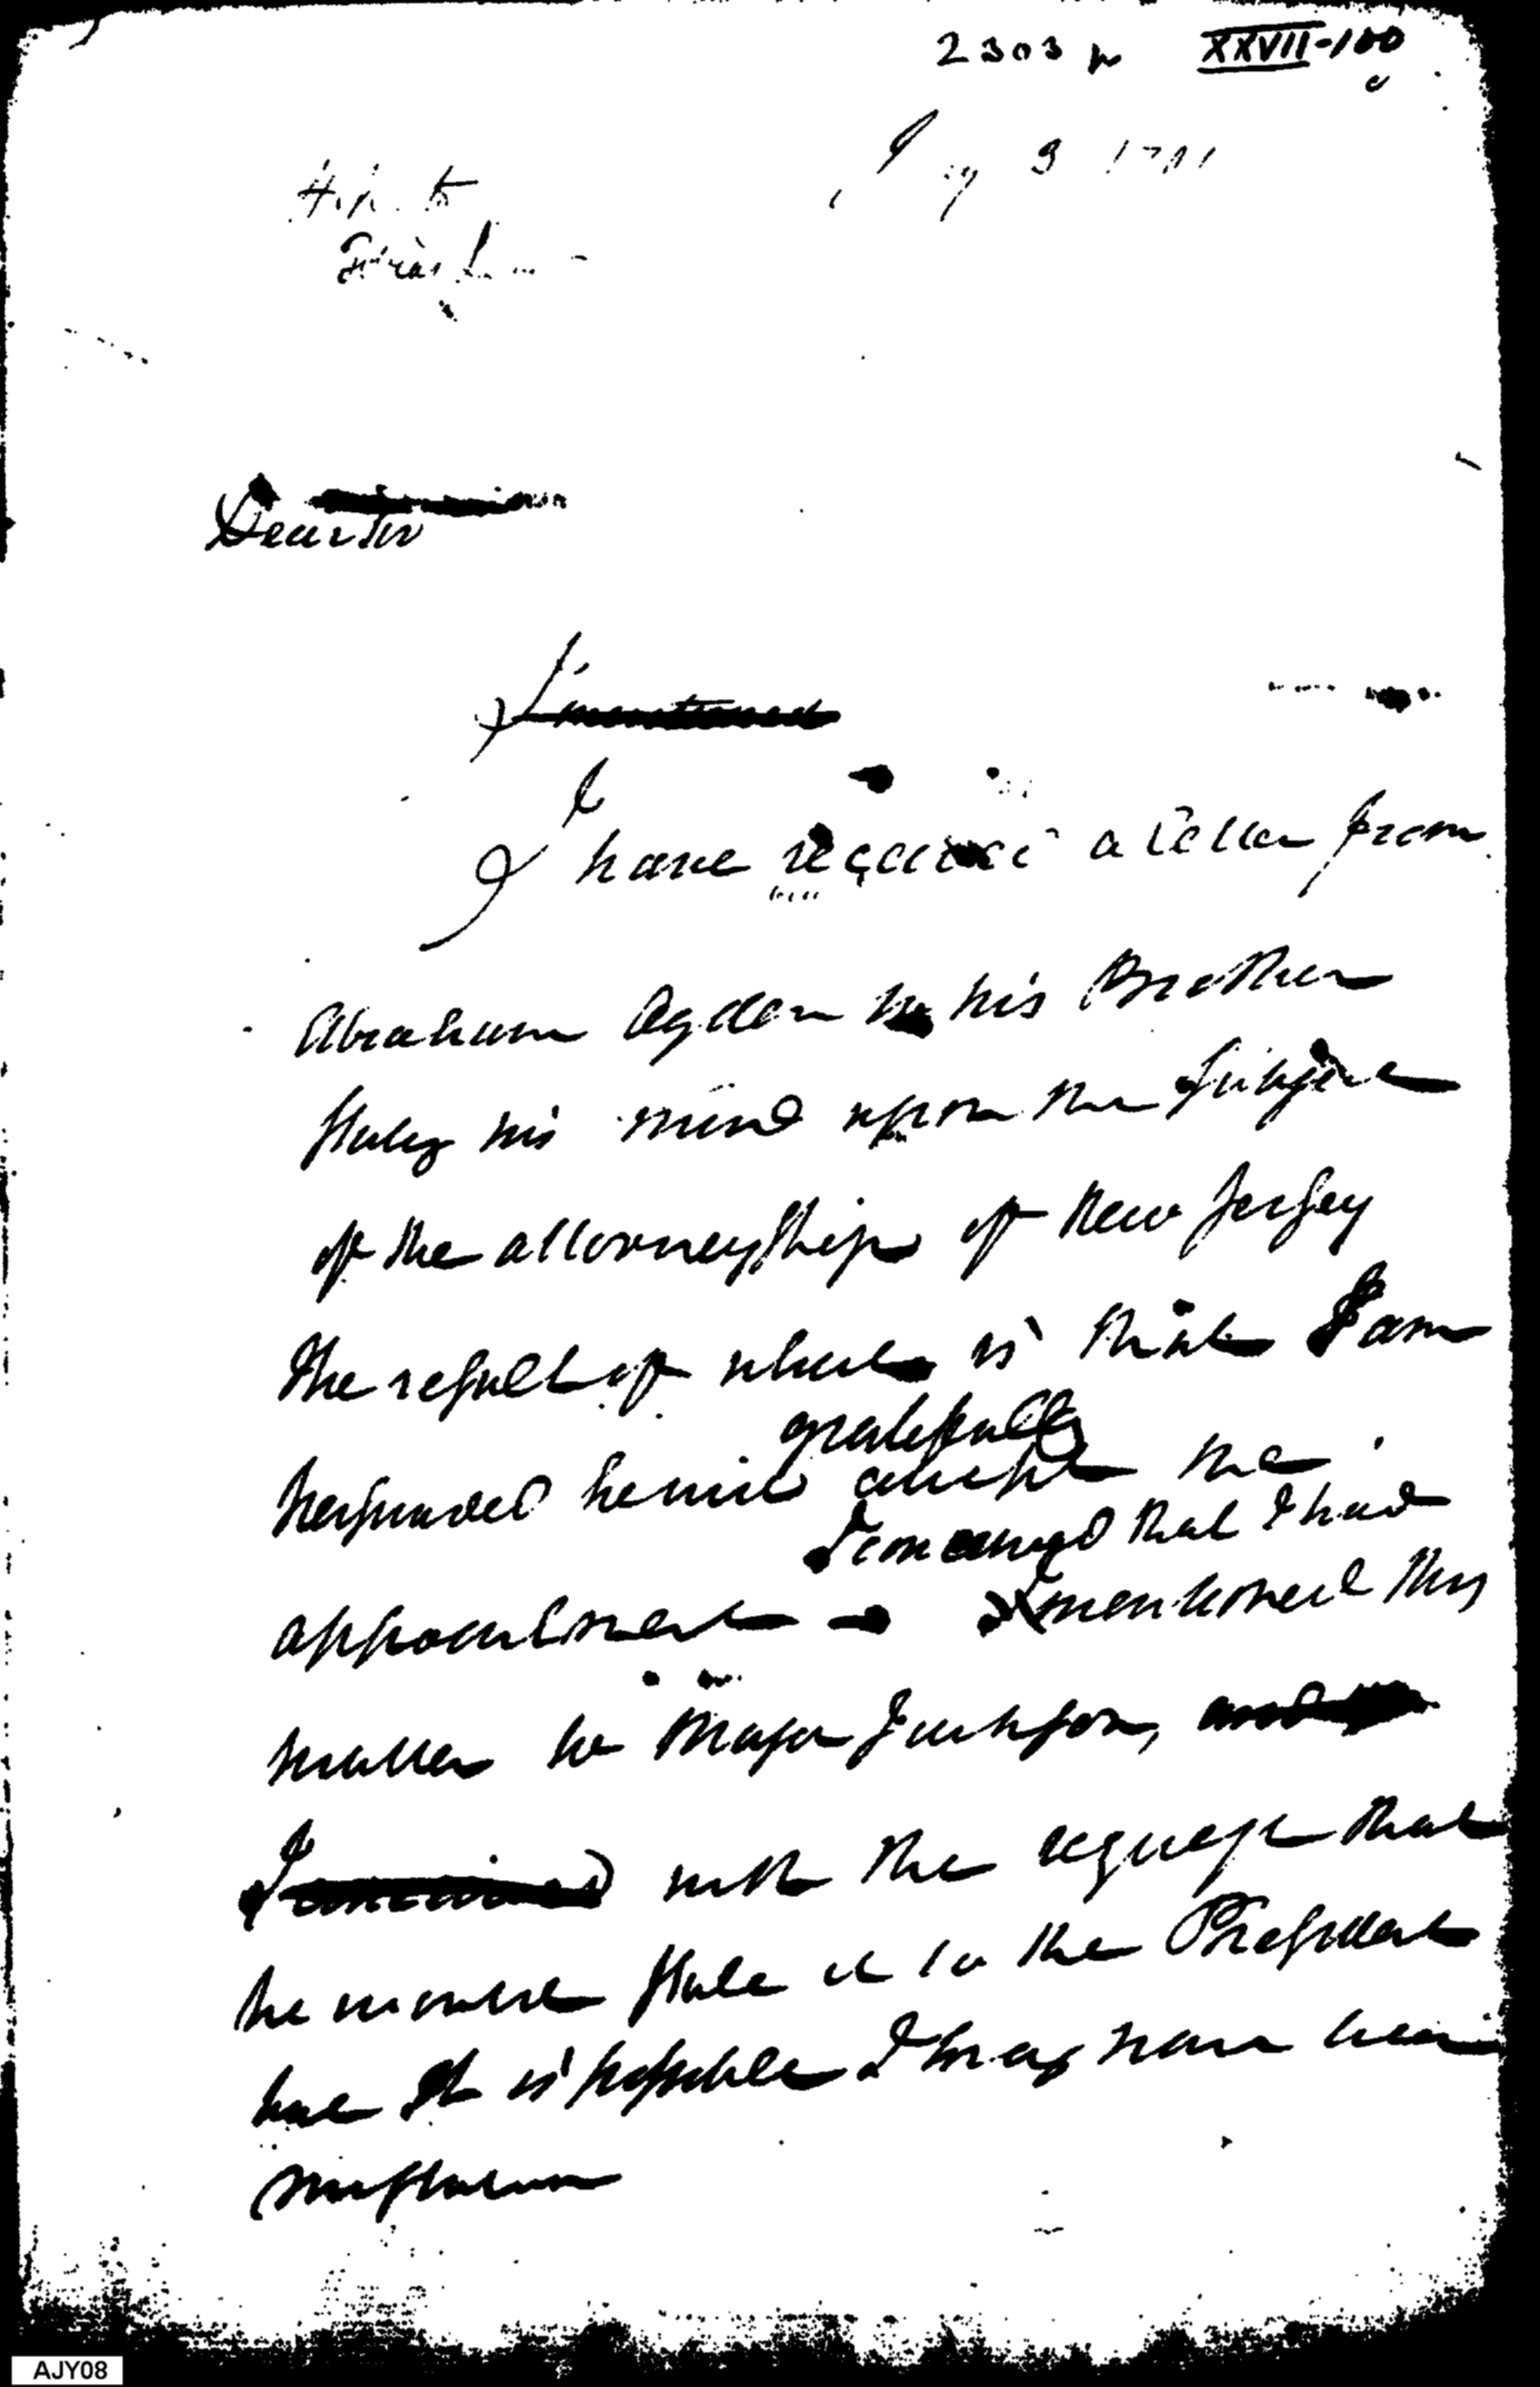 2303
XXVII-100
Dear Sir
I have received a letter from
Abraham Ogden to his Brother
stating his mind upon the subject
of the attorneyship of New Jersey
the result of which is that I am
gratefully
persuaded he will accept the
I conceived that I had
appointment — mentioned this
matter to Major Jackson,
with the request that
he would state it to the President
but It is possible I may have been
mistaken
AJY08